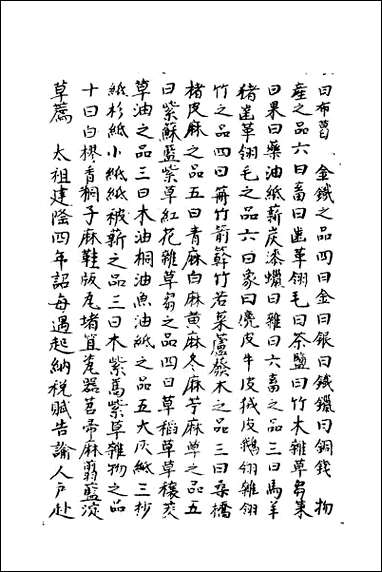 曰布葛 金鐵之品四曰金曰銀曰鐵鑞曰銅錢 物
產之品六曰畜曰齒革翎毛曰茶鹽曰竹木雜草芻萊
曰果曰藥油紙薪炭漆蠟曰雜曰六畜之品三曰馬羊
猪齒革翎毛之品六曰象曰麂皮牛皮狨皮鵝翎雜翎
竹之品四曰竹箭簳竹若菜蘆䕠木之品三曰桑橘
楮皮麻之品五曰青麻白麻黄麻冬麻苧麻草之品五
曰紫蘇藍紫草紅花雜草芻之品四曰草稻草草穰茭
草油之品三曰木油桐油魚油紙之品五大灰紙三抄
紙杉紙小紙紙被薪之品三曰木紫馬紫草雜物之品
十曰白樛香桐子麻鞋版瓦堵笪瓷器苕帚麻翦藍淀
草薦 太祖建隆四年詔每遇起納税賦告諭人户赴